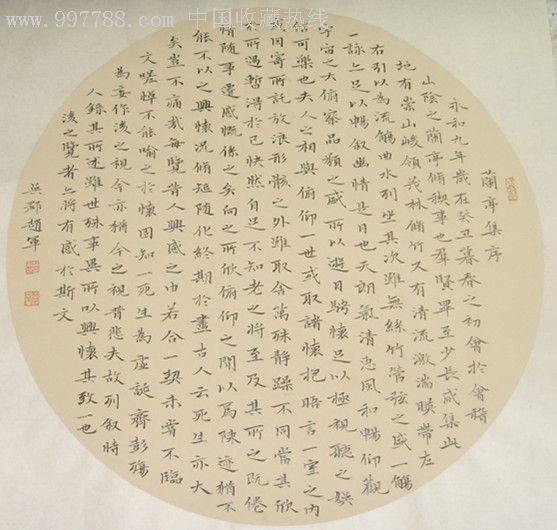 www.997788.com 中国收藏热线
蘭亭集序
永和九年歲在癸丑暮春之初會於會稽
山陰之蘭亭脩稧事也羣賢畢至少長咸集此
地有崇山峻領茂林脩竹又有清流激湍暎帶左
右引以為流觴曲水列坐其次雖無絲竹管弦之盛一觴
一詠亦足以暢叙幽情是日也天朗氣清惠風和暢仰觀
宇宙之大俯察品類之盛所以遊目騁懷足以極視聽之娛
信可樂也夫人之相與俯仰一世或取諸懷抱晤言一室之內
或因寄所託放浪形骸之外雖取舍萬殊靜躁不同當其欣
於所遇暫得於己快然自足不知老之將至及其所之既倦
情隨事遷感慨係之矣向之所欣俯仰之間以為陳迹猶不
能不以之興懷況脩短隨化終期於盡古人云死生亦大
矣豈不痛哉每覽昔人興感之由若合一契未嘗不臨
文嗟悼不能喻之於懷固知一死生為虛誕齊彭殤
為妄作後之視今亦猶今之視昔悲夫故列叙時
人錄其所述雖世殊事異所以興懷其致一也
後之覽者亦將有感於斯文
吳郡趙軍